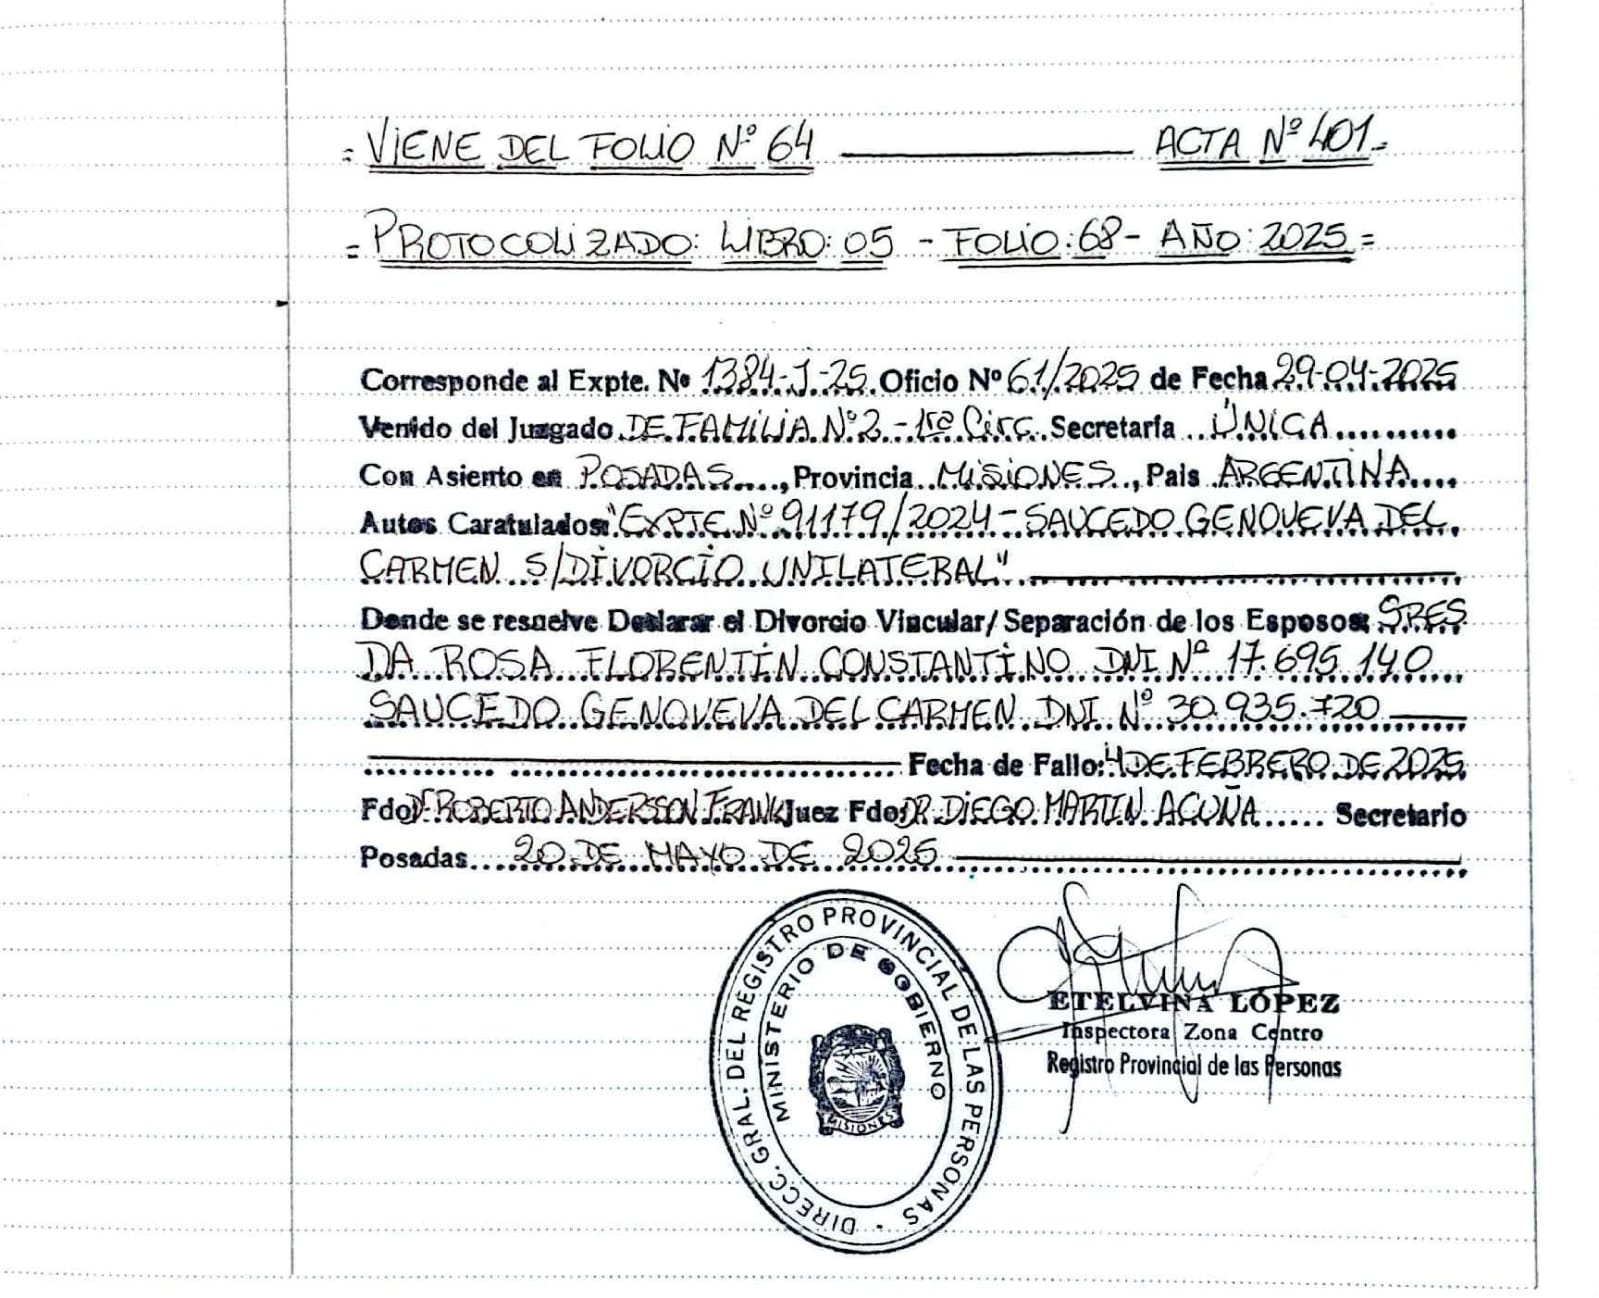 = VIENE DEL FOLIO Nº 64 ACTA Nº 401 =
= PROTOCOLIZADO: LIBRO: 05 - FOLIO: 68 - AÑO: 2025 =
Corresponde al Expte. Nº 1384-J-25 Oficio Nº 61/2025 de Fecha 29-04-2025
Venido del Juzgado DE FAMILIA Nº 2 - 1ra Circ. Secretaría ÚNICA
Con Asiento en POSADAS, Provincia MISIONES, Pais ARGENTINA
Autos Caratulados: "EXPTE Nº 91179/2024 - SAUCEDO GENOVEVA DEL
CARMEN S/DIVORCIO UNILATERAL"
Donde se resuelve Declarar el Divorcio Vincular/ Separación de los Esposos: SRES
DA ROSA FLORENTIN CONSTANTINO DNI Nº 17.695.140
SAUCEDO GENOVEVA DEL CARMEN DNI Nº 30.935.720
Fecha de Fallo: 4 DE FEBRERO DE 2025
Fdo: Dr ROBERTO ANDERSSON FRANK Juez Fdo: DR. DIEGO MARTIN ACUÑA Secretario
Posadas 20 DE MAYO DE 2025
DIRECC. GRAL. DEL REGISTRO PROVINCIAL DE LAS PERSONAS
MINISTERIO DE GOBIERNO
MISIONES
ETELVINA LÓPEZ
Inspectora Zona Centro
Registro Provincial de las Personas